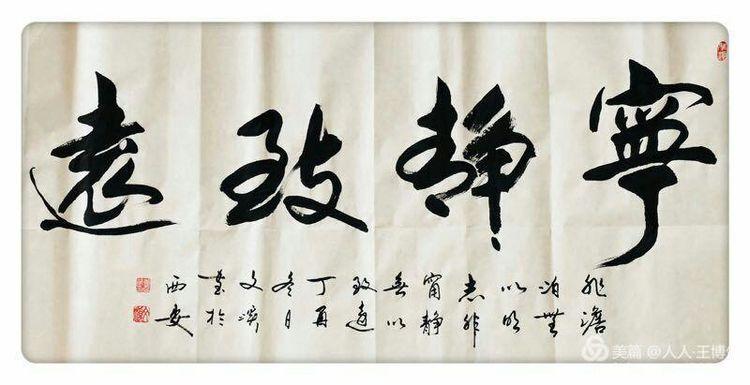 寧靜致遠
非澹
泊無
以明
志非
甯靜
無以
致遠
丁酉
冬日
文
書於
西安
美篇 @人人·王博